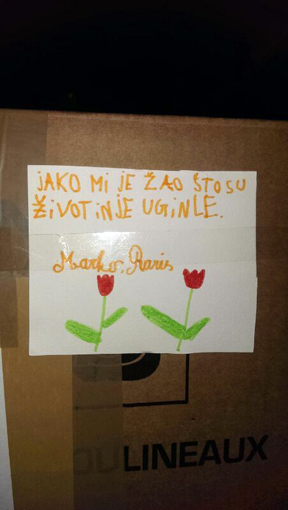 JAKO MI JE ŽAO ŠTO SU
ŽIVOTINJE UGINLE.
Marko, Paris
OULINEAUX